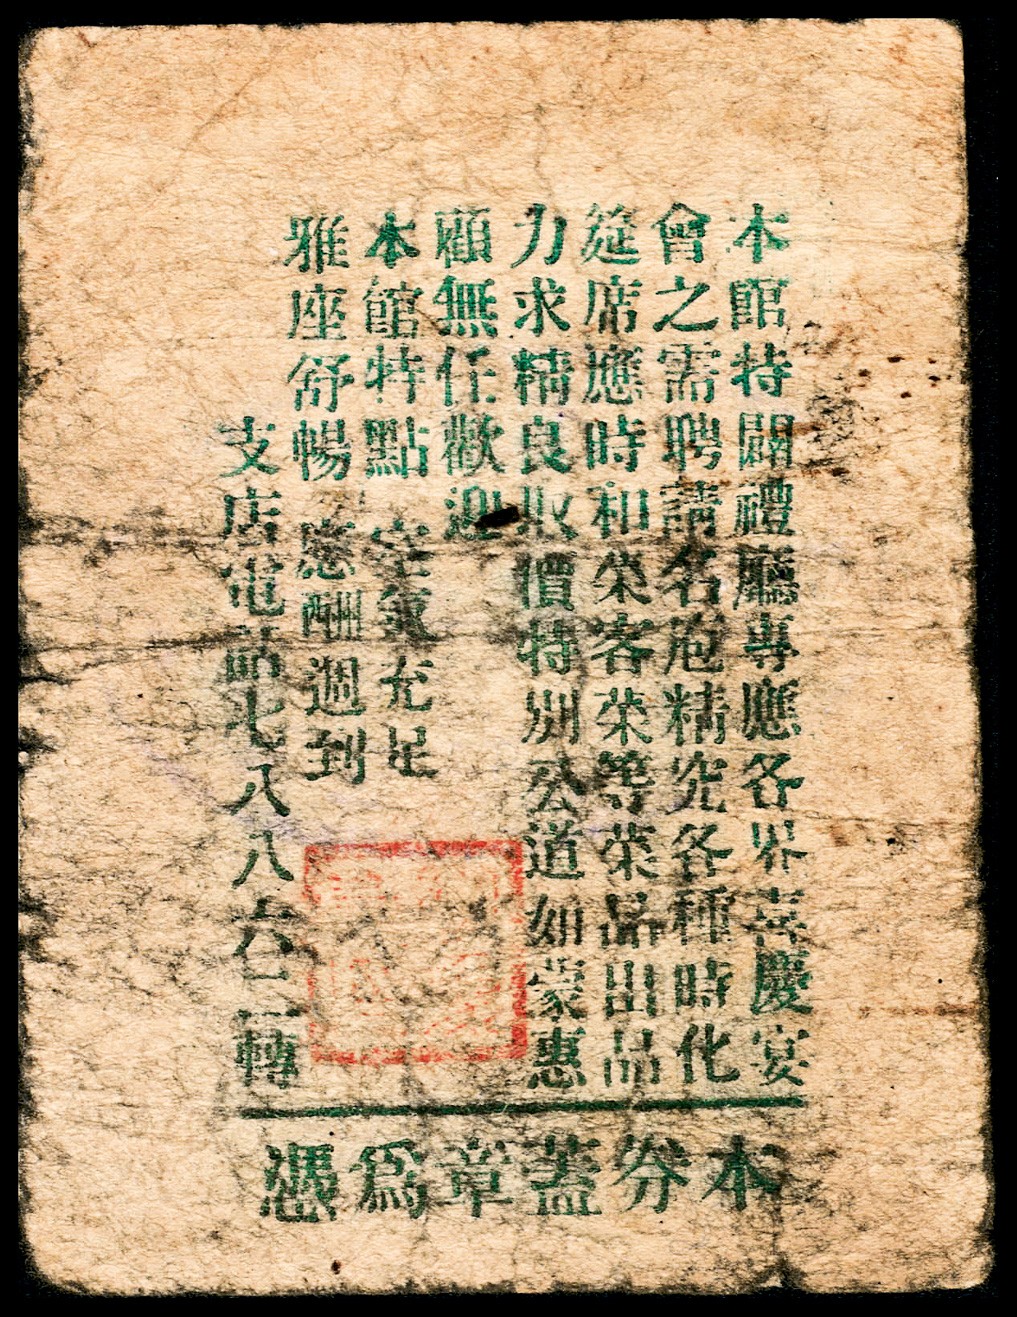 本館特闢禮廳專應各界喜慶宴
會之需聘請名庖精究各種時化
筵席應時和菜客菜等菜品出品
力求精良取價特別公道如蒙惠
顧無任歡迎
本館特點 空氣充足
雅座舒暢 應酬週到
支店電話七八八六二轉
本券蓋章爲憑